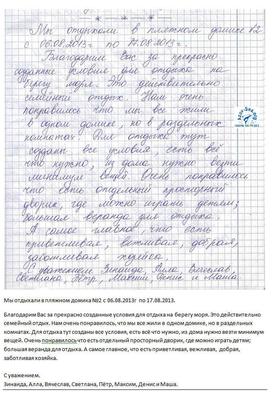 Мы отдыхали в пляжном домике №2
с 06.08.2013г. по 17.08.2013г.
Благодарим Вас за прекрасно
созданные условия для отдыха на
берегу моря. Это действительно
семейный отдых. Нам очень
понравилось что мы все жили
в одном домике, но в раздельных
комнатах. Для отдыха тут
созданы все условия, есть всё
что нужно, из дома нужно везти
минимум вещей. Очень понравилось
что есть отдельный просторный
дворик, где можно играть детям;
большая веранда для отдыха.
А самое главное, что есть
приветливая, вежливая, добрая,
заботливая хозяйка.
С уважением Зинаида, Алла, Вячеслав,
Светлана, Пётр, Максим, Денис и Маша.
Мы отдыхали в пляжном домика №2 с 06.08.2013г по 17.08.2013.
Благодарим Вас за прекрасные созданные условия для отдыха на берегу моря. Это действительно
семейный отдых. Нам очень понравилось, что мы все жили в одном домике, но в раздельных
комнатах. Для отдыха тут созданы все условия, есть всё что нужно, из дома нужно везти минимум
вещей. Очень понравилосьчто есть отдельный просторный дворик, где можно играть детям;
большая веранда для отдыха. А самое главное, что есть приветливая, вежливая, добрая,
заботливая хозяйка.
С уважением.
Зинаида, Алла, Вячеслав, Светлана, Пётр, Максим, Денис и Маша.